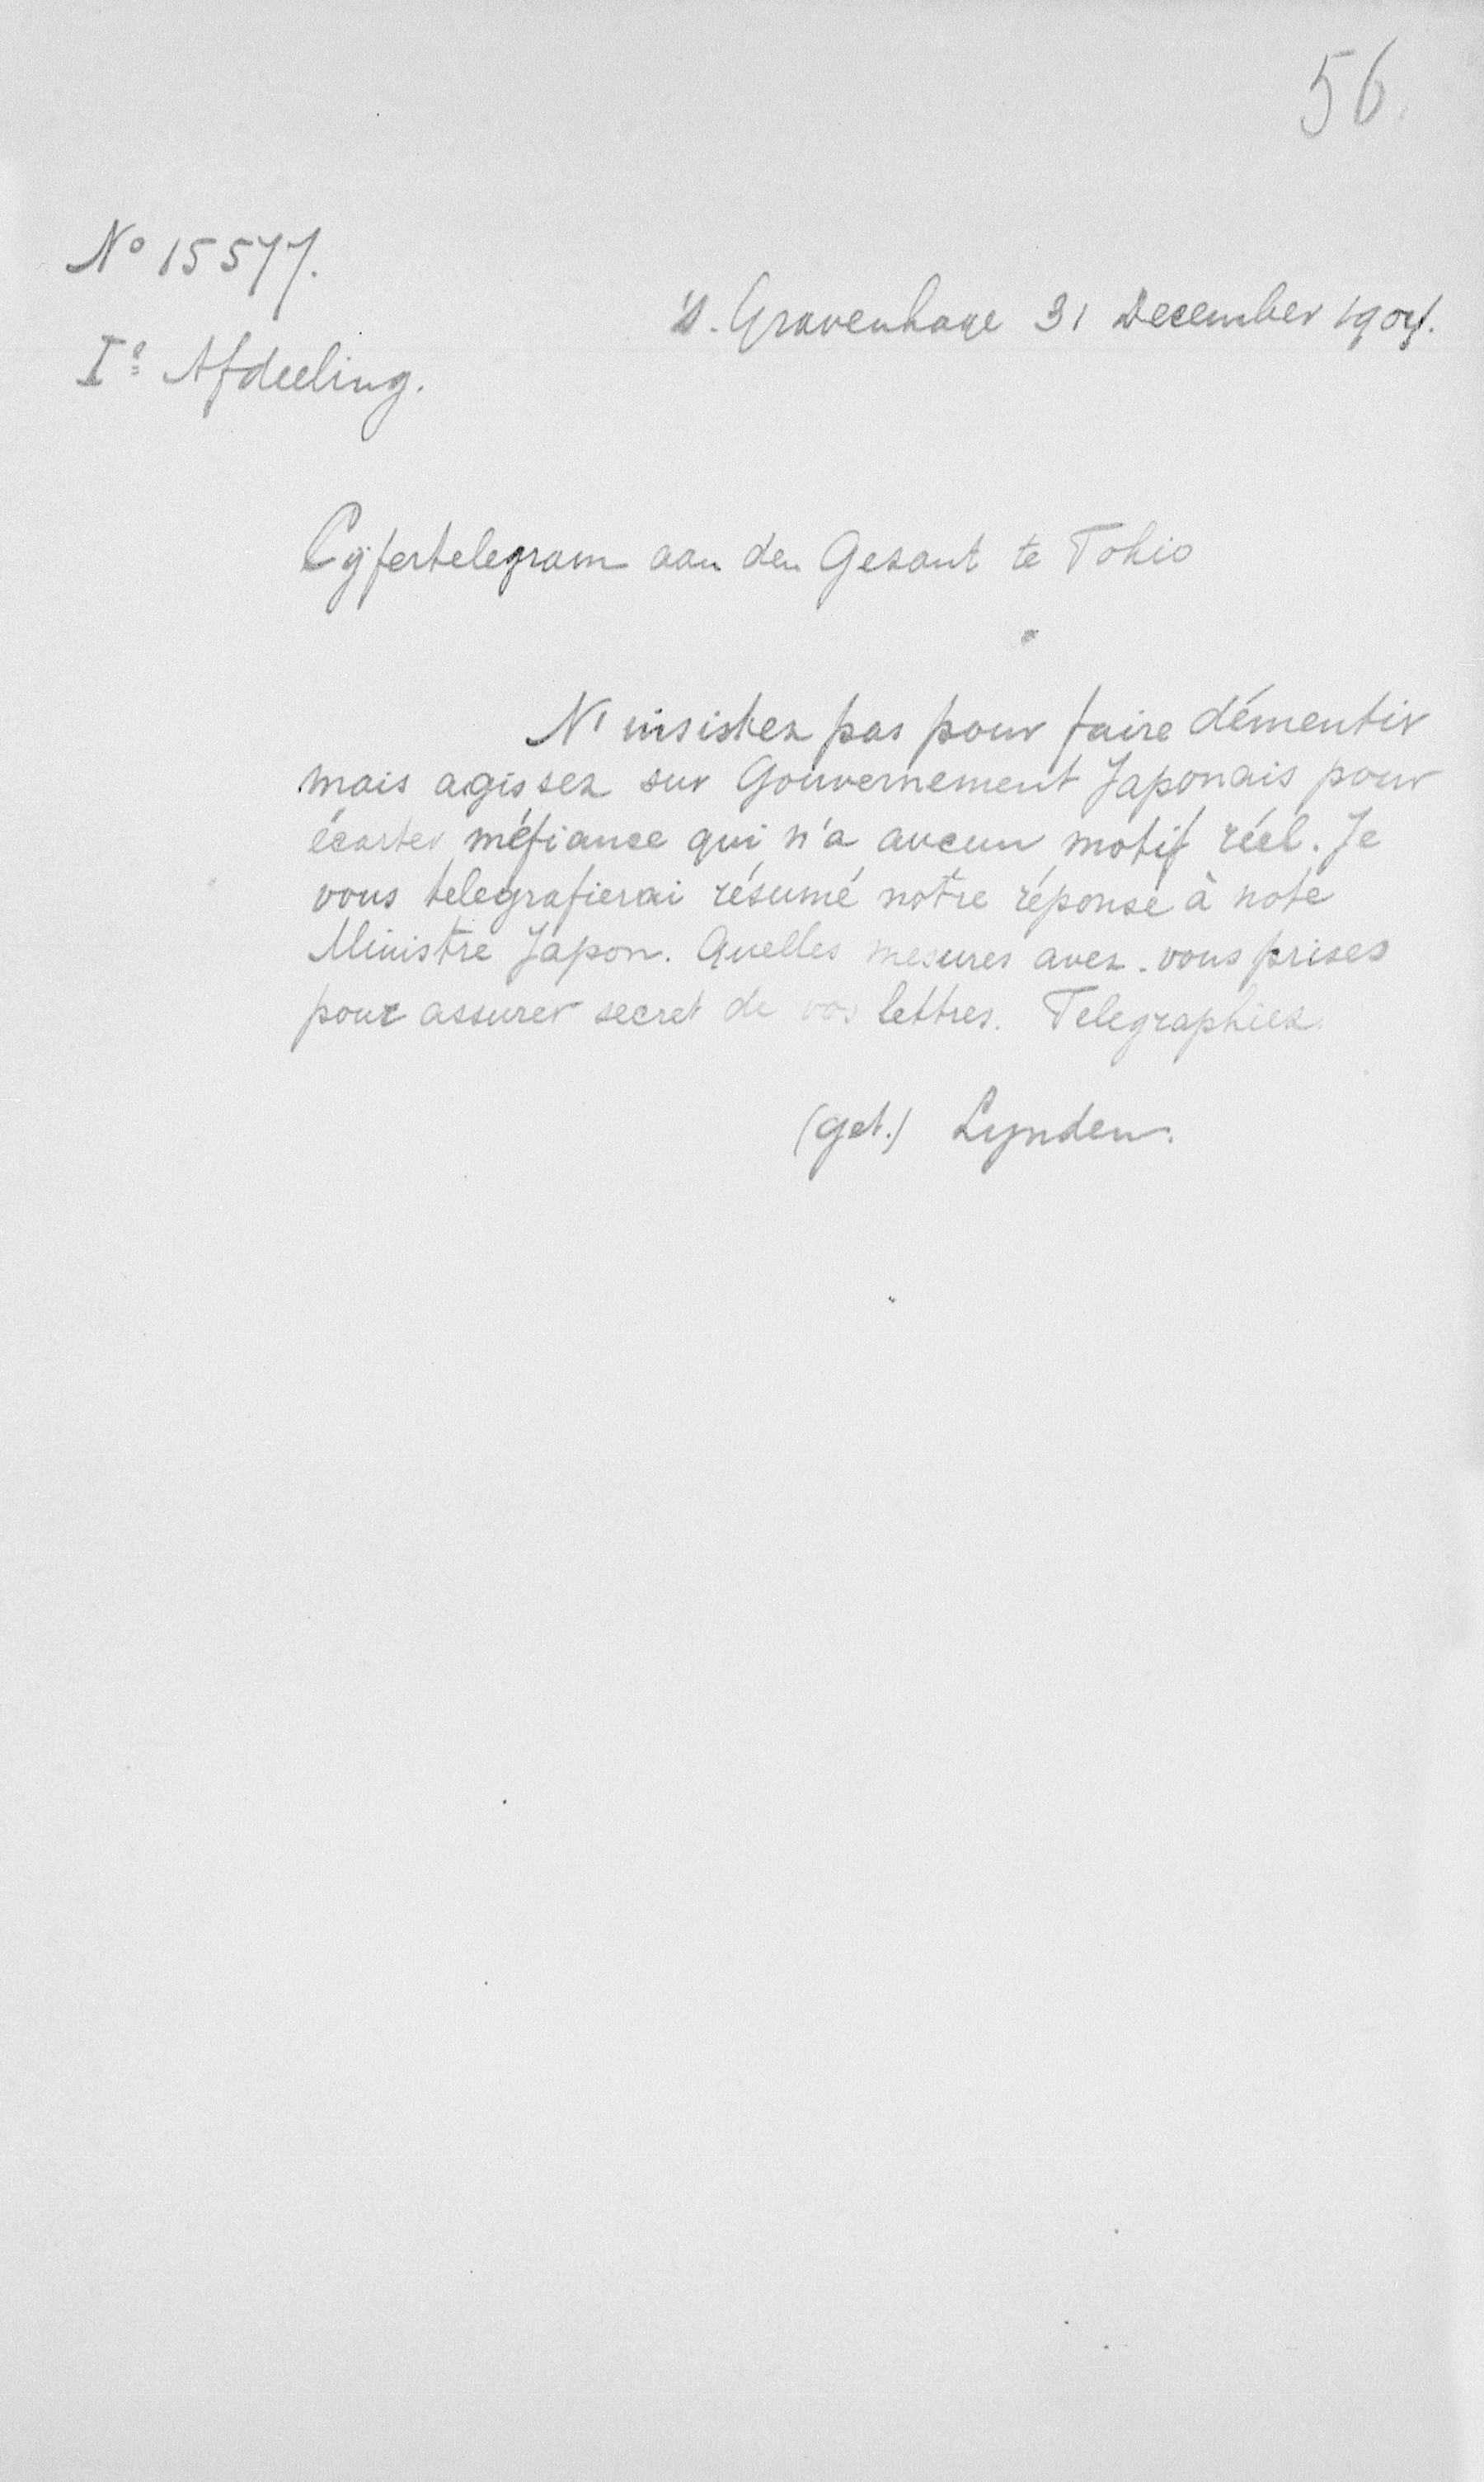 56.
No 15577.
's-Gravenhage 31 December 1904.
Ie Afdeeling.
Cijfertelegram aan den Gezant te Tokio
N'insistez pas pour faire démentir
mais agissez sur Gouvernement Japonais pour
écarter méfiance qui n'a aucun motif réél. Je
vous telegrafierai résumé notre réponse à note
Ministre Japon. Quelles mesures avez-vous prises
pour assurer secret de vos lettres. Telegraphiez.
(get.) Lynden.